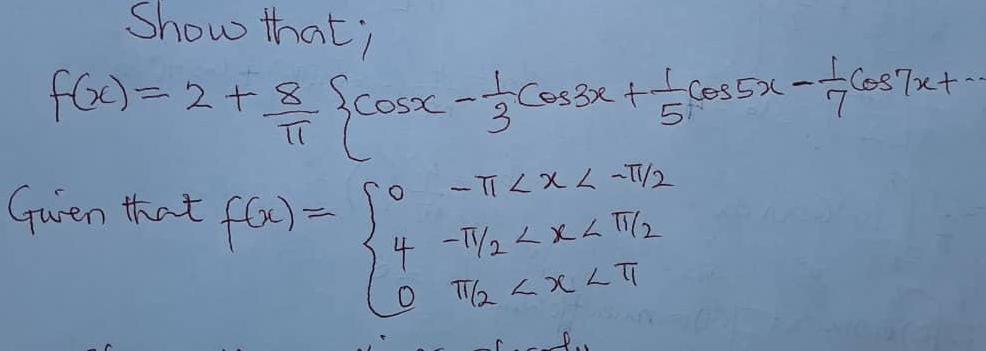 Show that;
f(x) = 2 + 8/π {cosx - 1/3 Cos3x + 1/5 Cos5x - 1/7 Cos7x + ...
Given that f(x) = { 0 -π < x < -π/2
4 -π/2 < x < π/2
0 π/2 < x < π